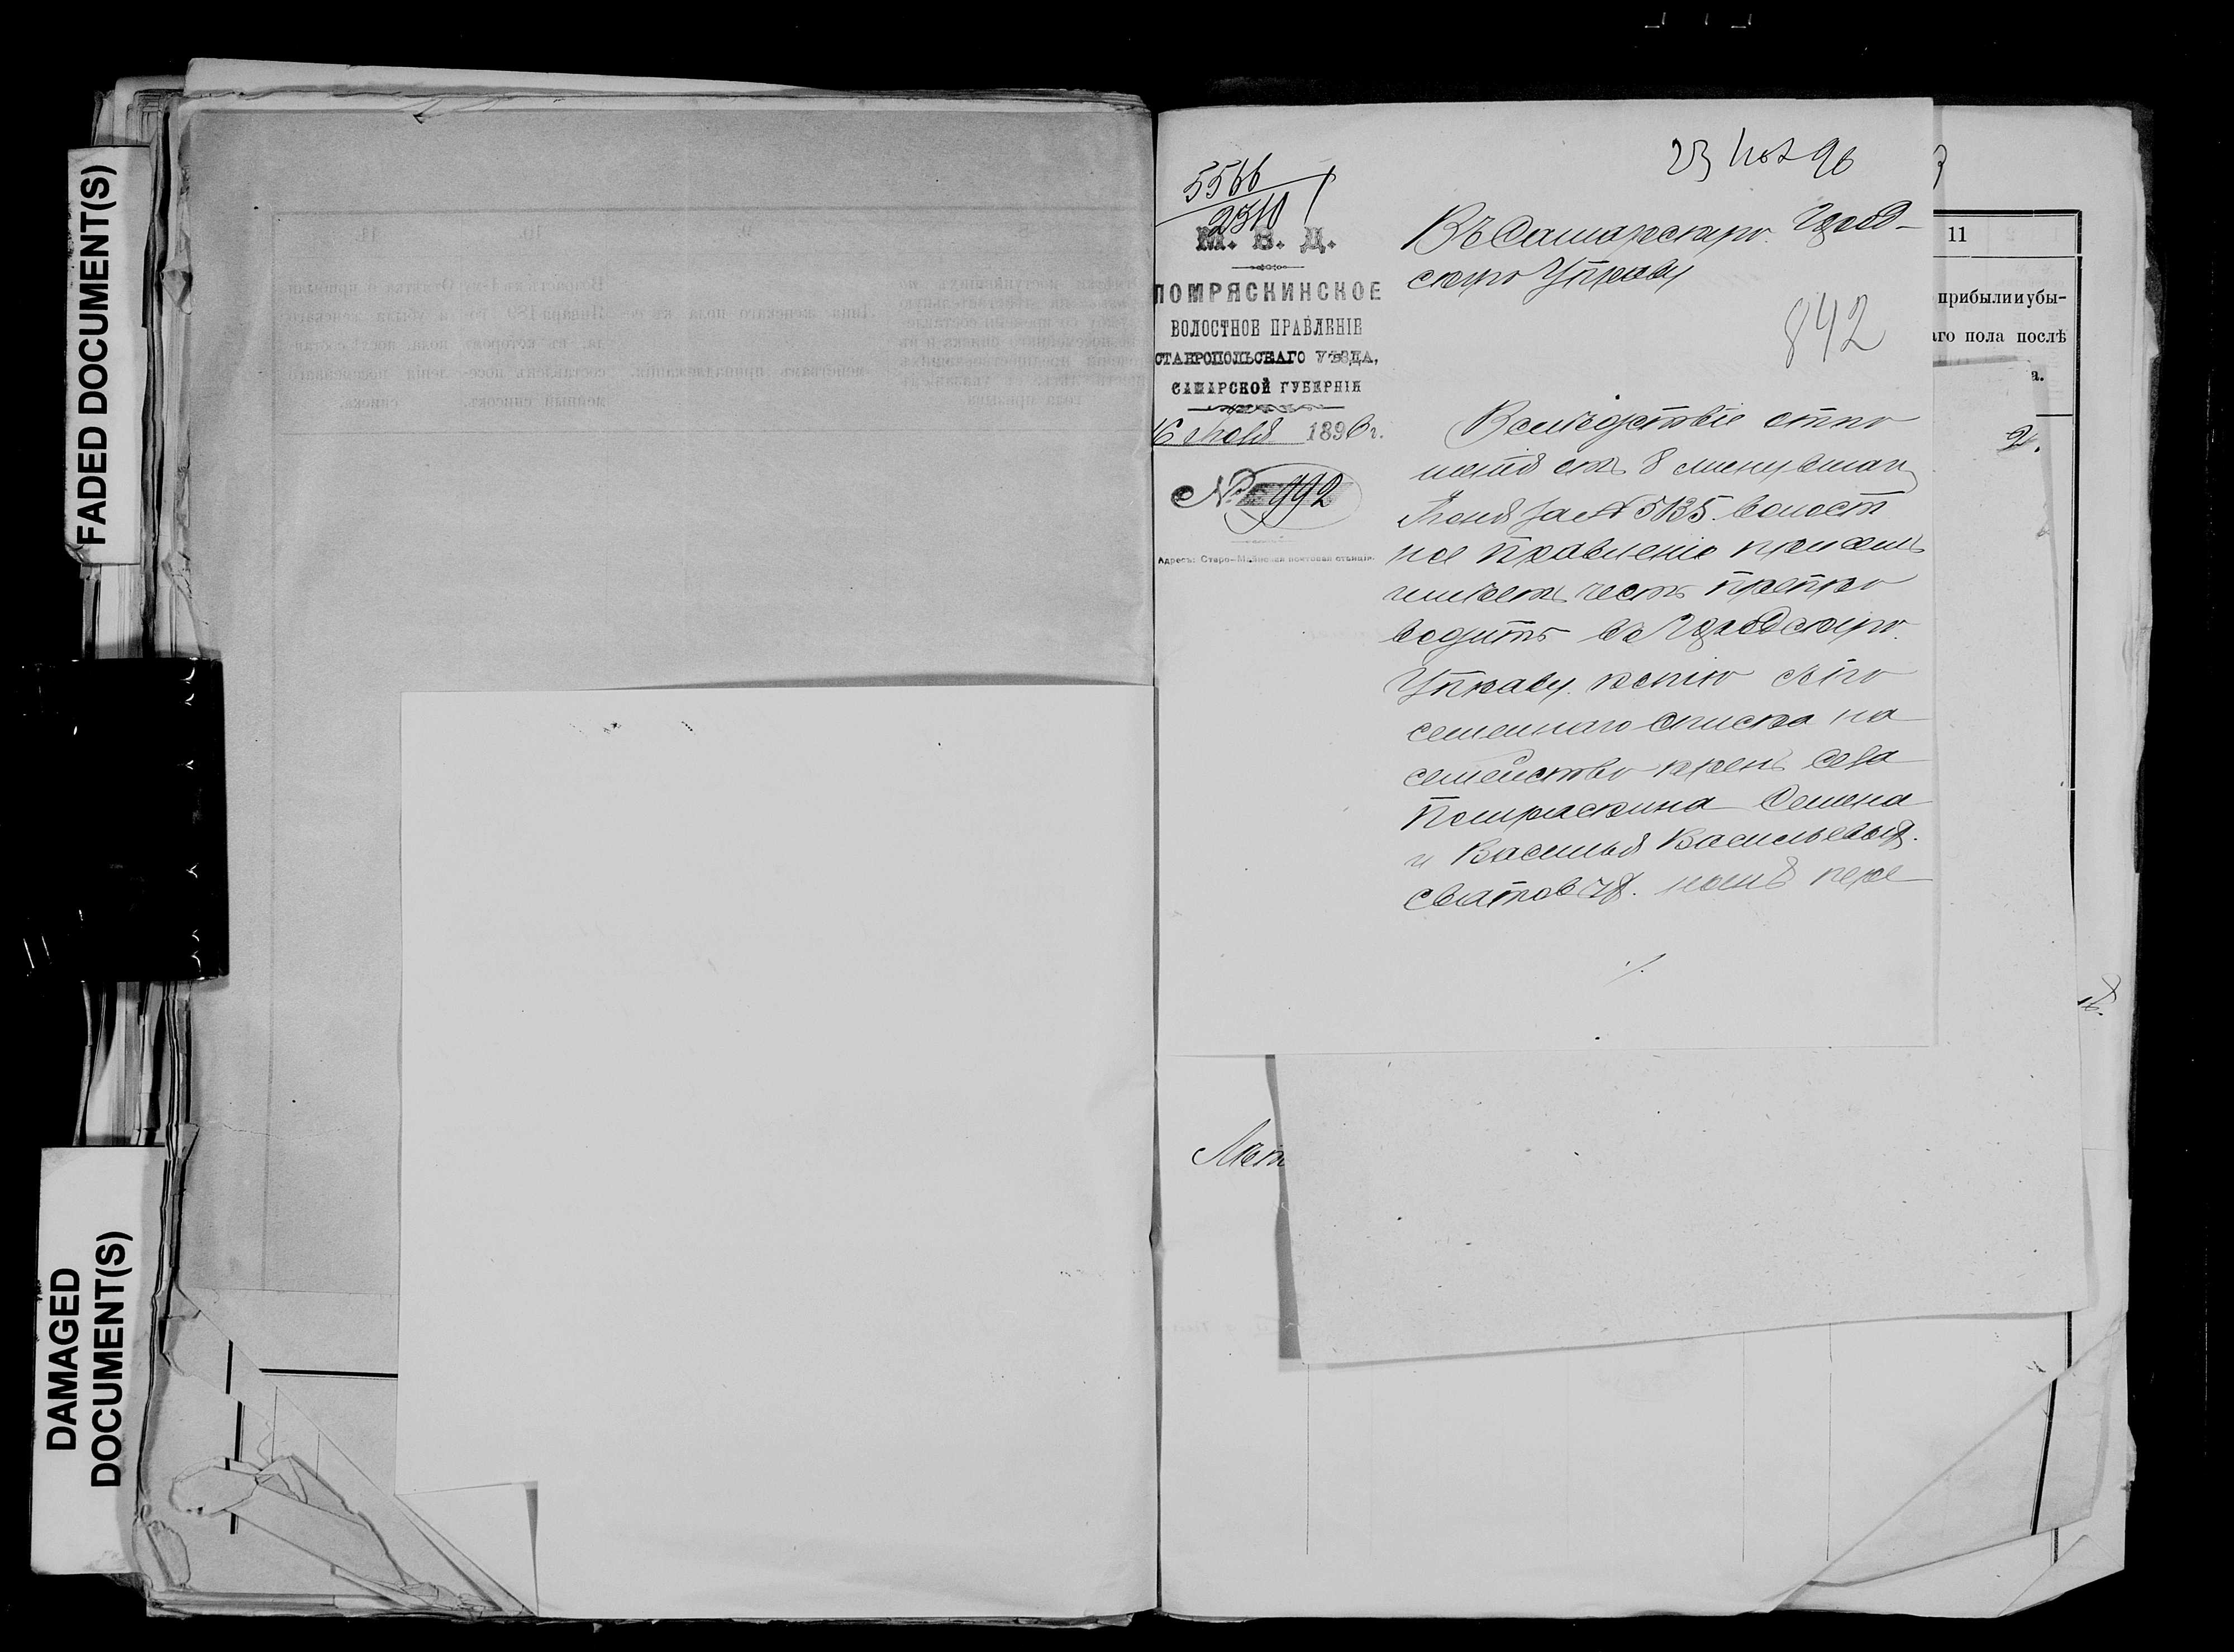 FADED DOCUMENT(S)
DAMAGED
DOCUMENT(S)
23 Июл 96
5566
2310
М. В. Д.
ПОМРЯСКИНСКОЕ
ВОЛОСТНОЕ ПРАВЛЕНІЕ
СТАВРОПОЛЬСКАГО УѢЗДА,
САМАРСКОЙ ГУБЕРНІИ
16 Июля 1896 г.
№ 992
Адресъ: Старо-Майнская почтовая станція.
Въ Самарскую Город-
скую Управу
842
Вслѣдствіе отно
шенія отъ 8 минувшаго
Іюня за № 5135 волост
ное Правленіе при семъ
имѣетъ честь препро
водить въ Городскую
Управу копію по
семейнаго списка на
семейство крест. села
Помряскина Семена
и Василья Васильевыхъ
пере
11
прибыли и убы-
аго пола послѣ
а.